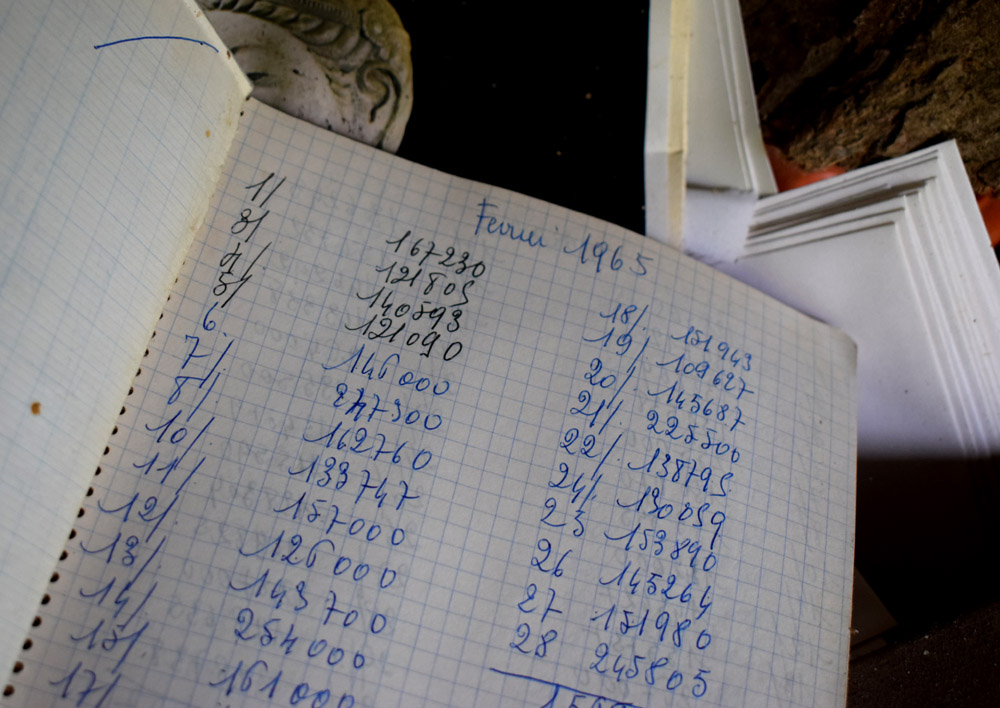 Fevrier 1965
1/ 167230
3/ 121805
4/. 140593
5/ 121090
6. 146000
7/. 247300
8/ 162760
10/. 133747
11/ 157000
12/. 126000
13/. 143700
14/. 254000
15/. 161000
17/
18/. 151943
19/ 109627
20/. 145687
21/. 225500
22/. 138795
24/. 130059
25 153890
26 145264
27 151980
28 245805